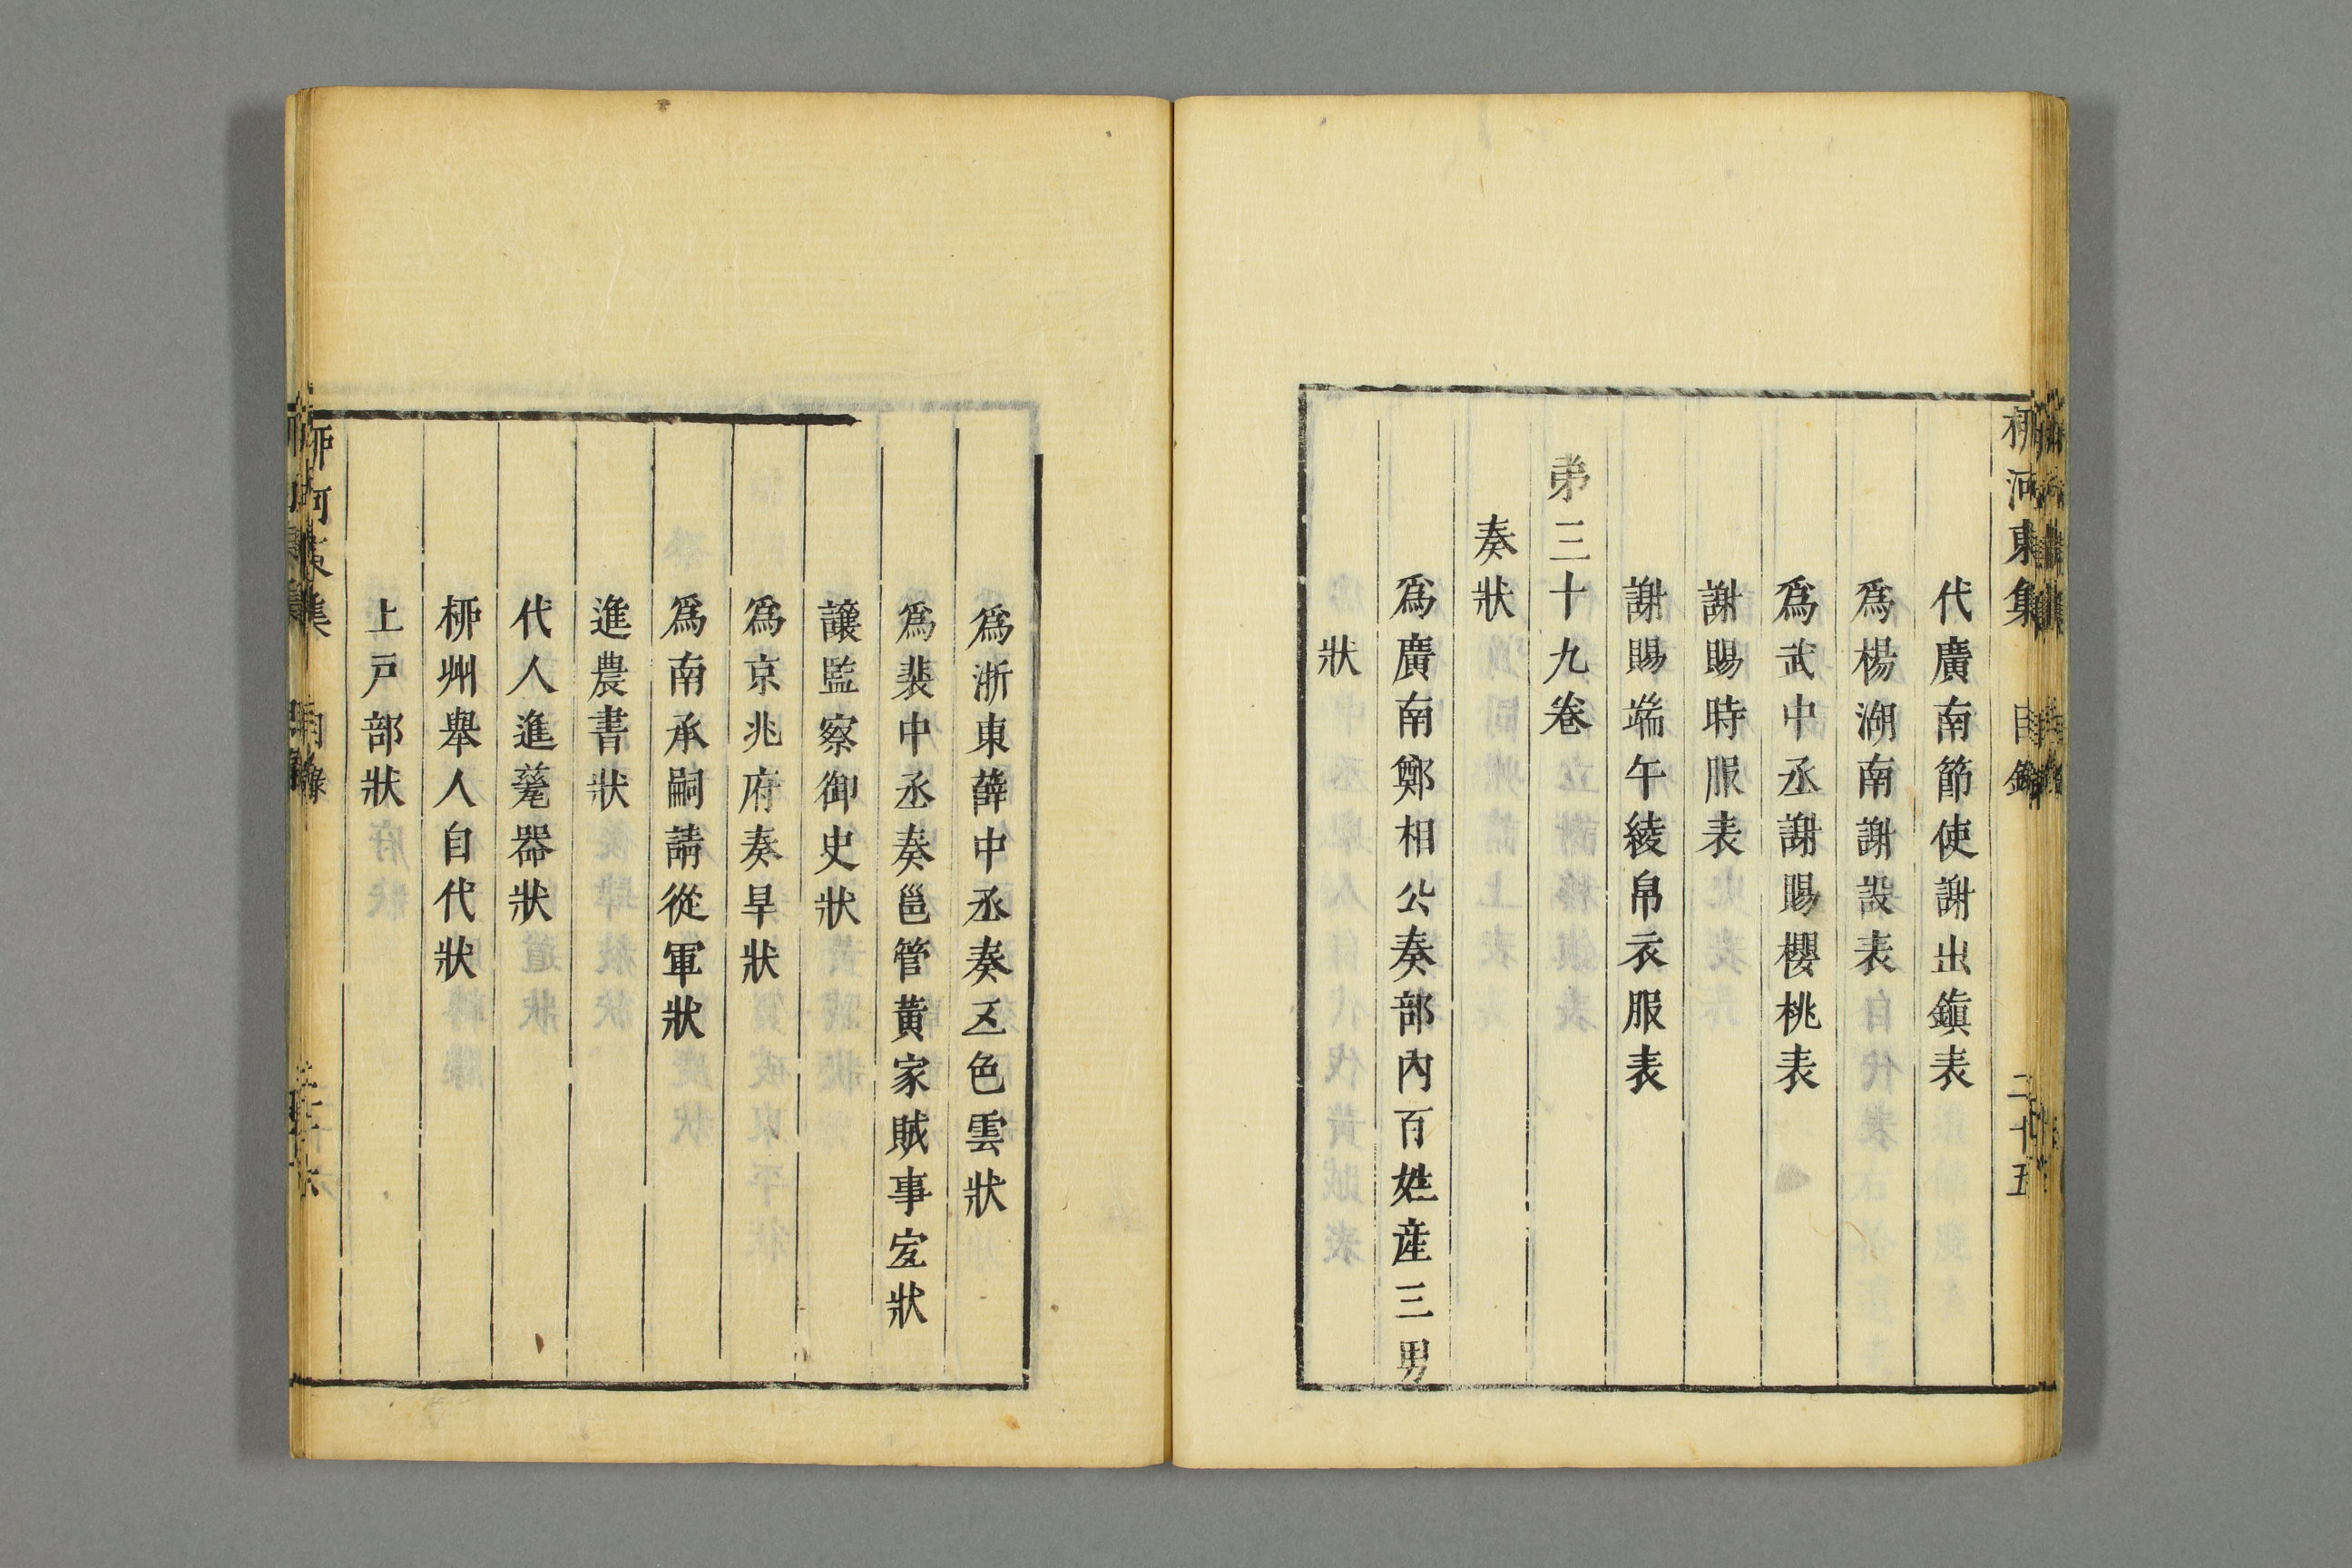 柳河東集 目錄 二十五
代廣南節使謝出鎭表
爲楊湖南謝設表
爲武中丞謝賜櫻桃表
謝賜時服表
謝賜端午綾帛衣服表
弟三十九卷
奏狀
爲廣南鄭相公奏部內百姓產三男
狀
爲浙東薛中丞奏五色雲狀
爲裴中丞奏邕管黃家賊事宐狀
讓監察御史狀
爲京兆府奏旱狀
爲南承嗣請從軍狀
進農書狀
代人進甆器狀
柳州舉人自代狀
上戸部狀
柳河東集 目錄